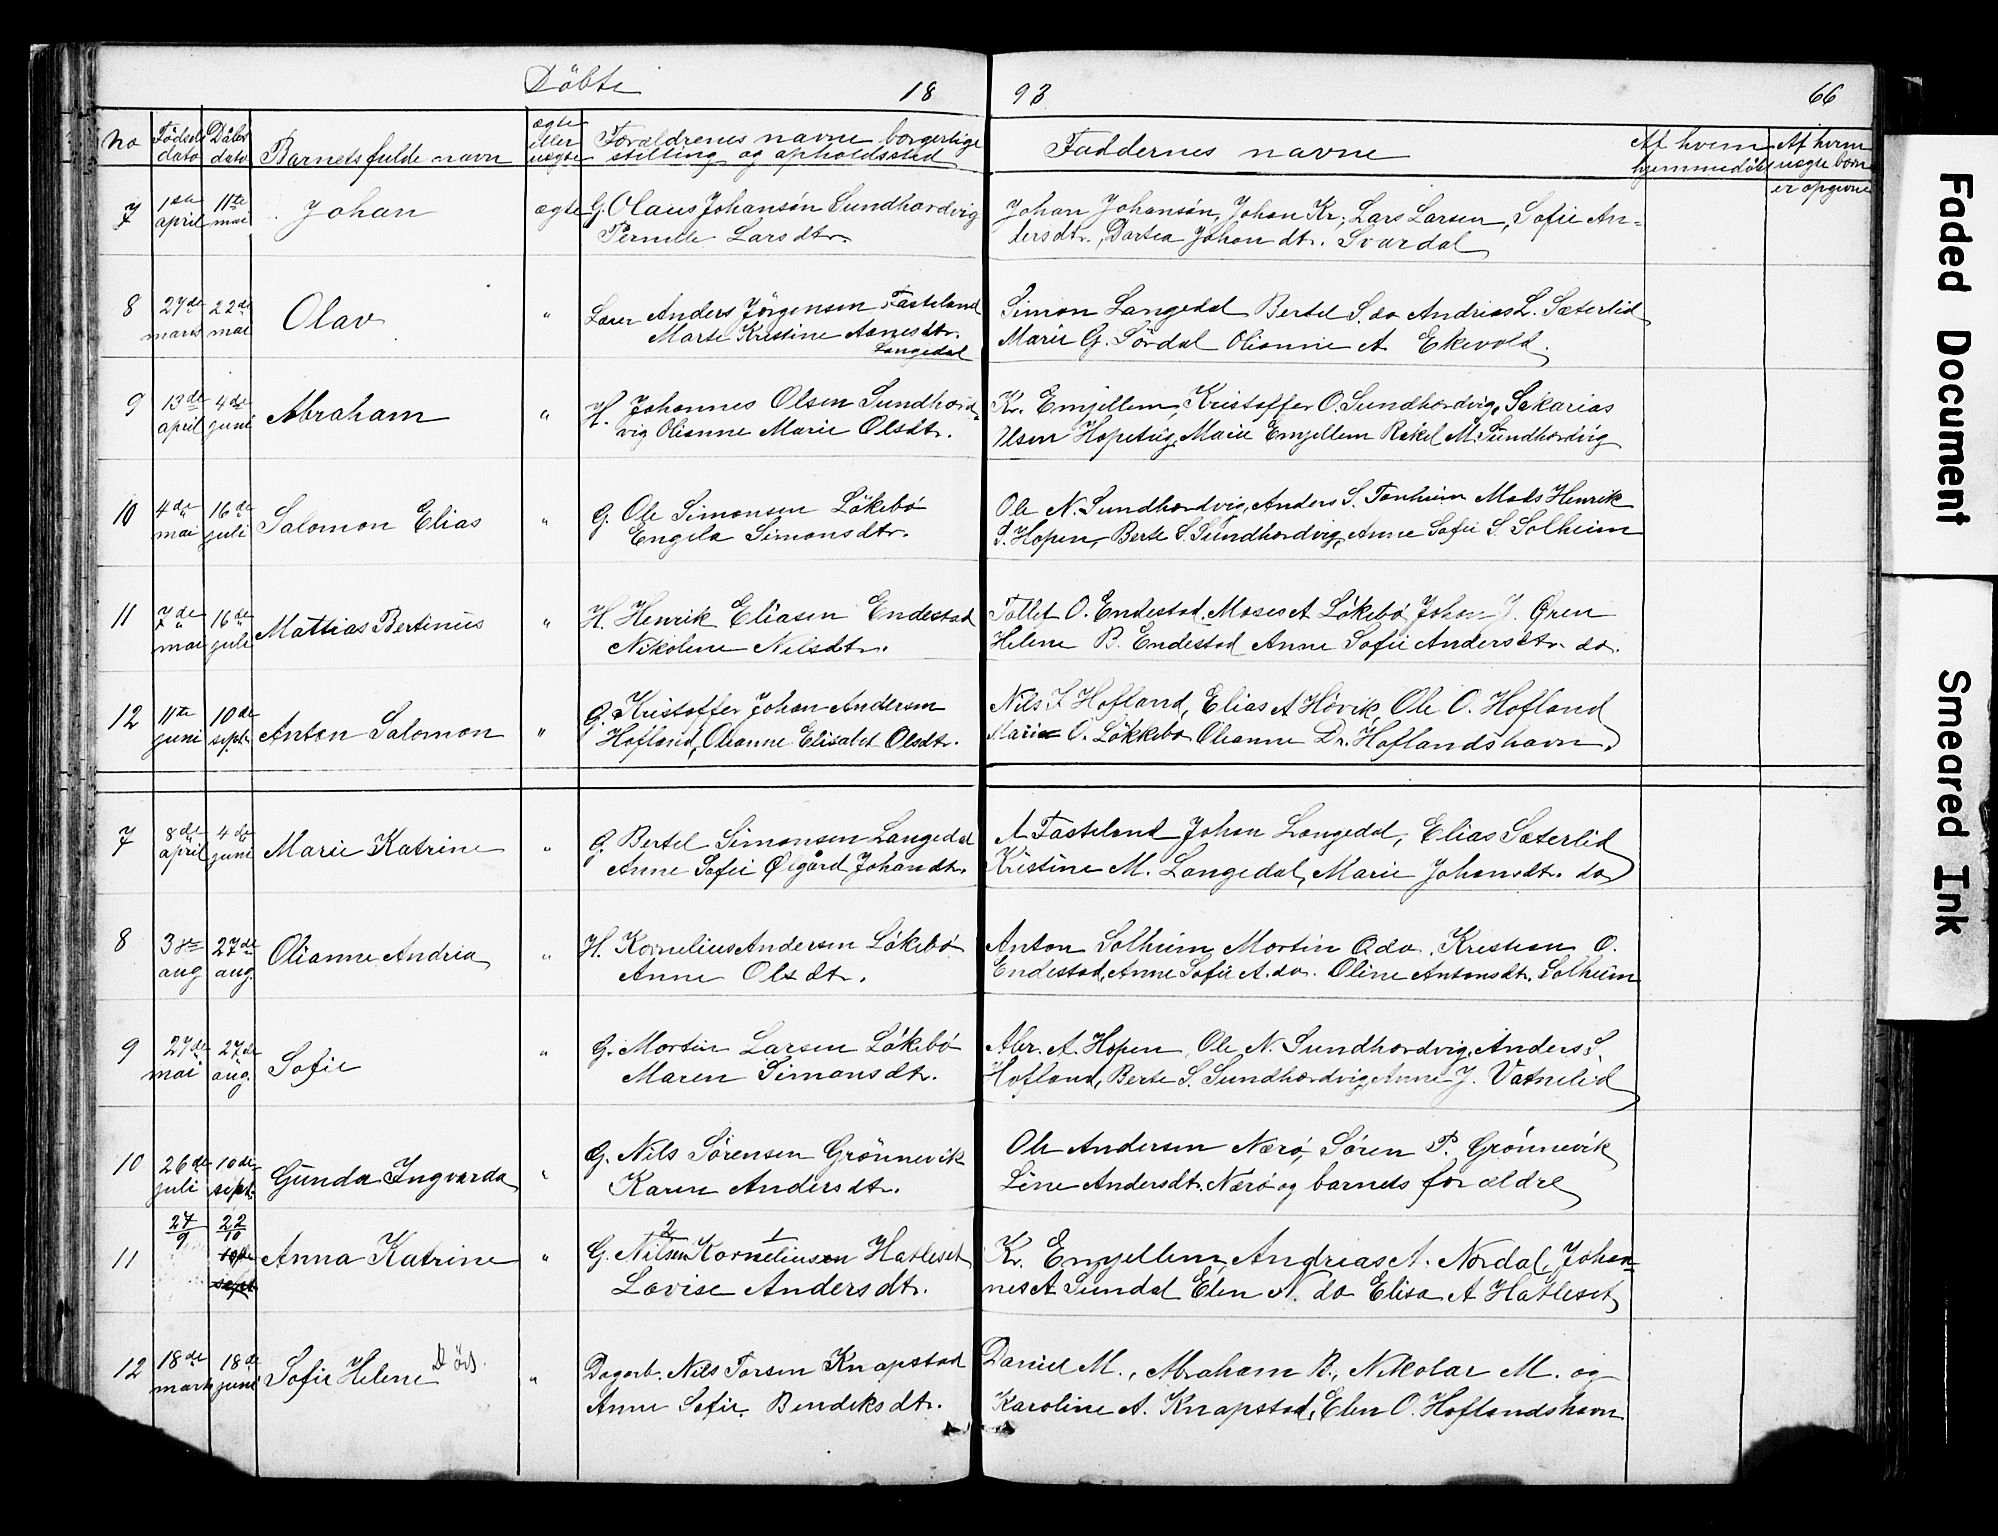 Döbte 18 93 66
No Födsels dato Dåbs dato Barnets fulde navn ægte eller uægte Forældrenes navne borgerlige stilling og opholdssted Faddernes navne Af hvem hjemmedöbt Af hvem uægte born er opgivne
7 1ste april 11te mai Johan ægte G. Olaus Johansön Sundhordvig Johan Johansön, Johan Kr., Lars Larsen, Sofie An-
Pernille Larsdtr. dersdtr., Dortea Johan dtr. Svardal
8 27de marts 22de mai Olav " Lærer Anders Jörgensen Fasteland Simon Langedal Bertel S. do Andrias L. Sæterlid
Marte Kristine Aanesdtr. Langedal Marie G. Sördal Olianne A Ekevold.
9 13de april 4de juni Abraham " H. Johannes Olsen Sundhord- Kr. Emjellem, Kristoffer O. Sundhordvig, Sakarias
vig Olianne Marie Olsdtr. Olsen Hopstrig, Marie Emjellem Rakel M. Sundhordvig
10 4de mai 16de juli Salomon Elias " G. Ole Simonsen Lökebö Ole N. Sundhordvig, Anders S. Tonheim Mads Henrik
Engela Simonsdtr. S. Hopen, Berte S. Sundhordvig, Anne Sofie S. Solheim
11 7de mai 16de juli Mattias Bertinus " H. Henrik Eliasen Endestad Tollef O. Endestad, Moses A Lökebö Johan J. Ören
Nikoline Nilsdtr. Helene B. Endestad Anne Sofie Andersdtr. do.
12 11te juni 10de sept. Anton Salomon " G. Kristoffer Johan Andersen Nils J Hofland, Elias A Hövik, Ole O. Hofland
Hofland, Olianne Elisabet Olsdtr. Marie O. Lökkebö Olianne Dr. Hoflandshavn.
7 8de april 4de juni Marie Katrine " G. Bertel Simonsen Langedal A Fasteland Johan Langedal, Elias Sæterlid
Anne Sofie Øigård Johandtr. Kristine M. Langedal, Marie Johansdtr. do
8 3die aug 27de aug. Olianne Andrea " H. Kornelius Andersen Lökebö Anton Solheim, Mortin O do. Kristian O.
Anne Olsdtr. Endestad, Anne Sofie A. do. Oline Antonsdtr. Solheim
9 27de mai 27de aug. Sofie " G. Mortin Larsen Lökebö Abr. A. Hopen, Ole N. Sundhordvig, Anders S.
Maren Simonsdtr. Hofland, Berte S. Sundhordvig, Anne J. Vatnelid
10 26de juli 10de sept. Gunda Ingvarda " G. Nils Sörensen Grönnevik Ole Andersen Nærö, Sören P. Grönnevik
Karen Andersdtr. Line Andersdtr. Nærö og barnets forældre
11 27/9 22/10 10de sept. Anna Katrine " G. Nilsen Korneliusen Hatleset Kr. Emjellem, Andreas A. Nordal, Johan-
2 1
Lovise Andersdtr. nes A Sundal Elen N. do Elisa A Hatleset
12 18de marts 18de juni Sofie Helene Död. " Dagarb. Nils Torsen Knapstad Daniel M., Abraham B., Nikolai M. og
Anne Sofie Bendiksdtr. Karoline A. Knapstad, Elen O. Hoflandshavn
Faded Document
Smeared Ink